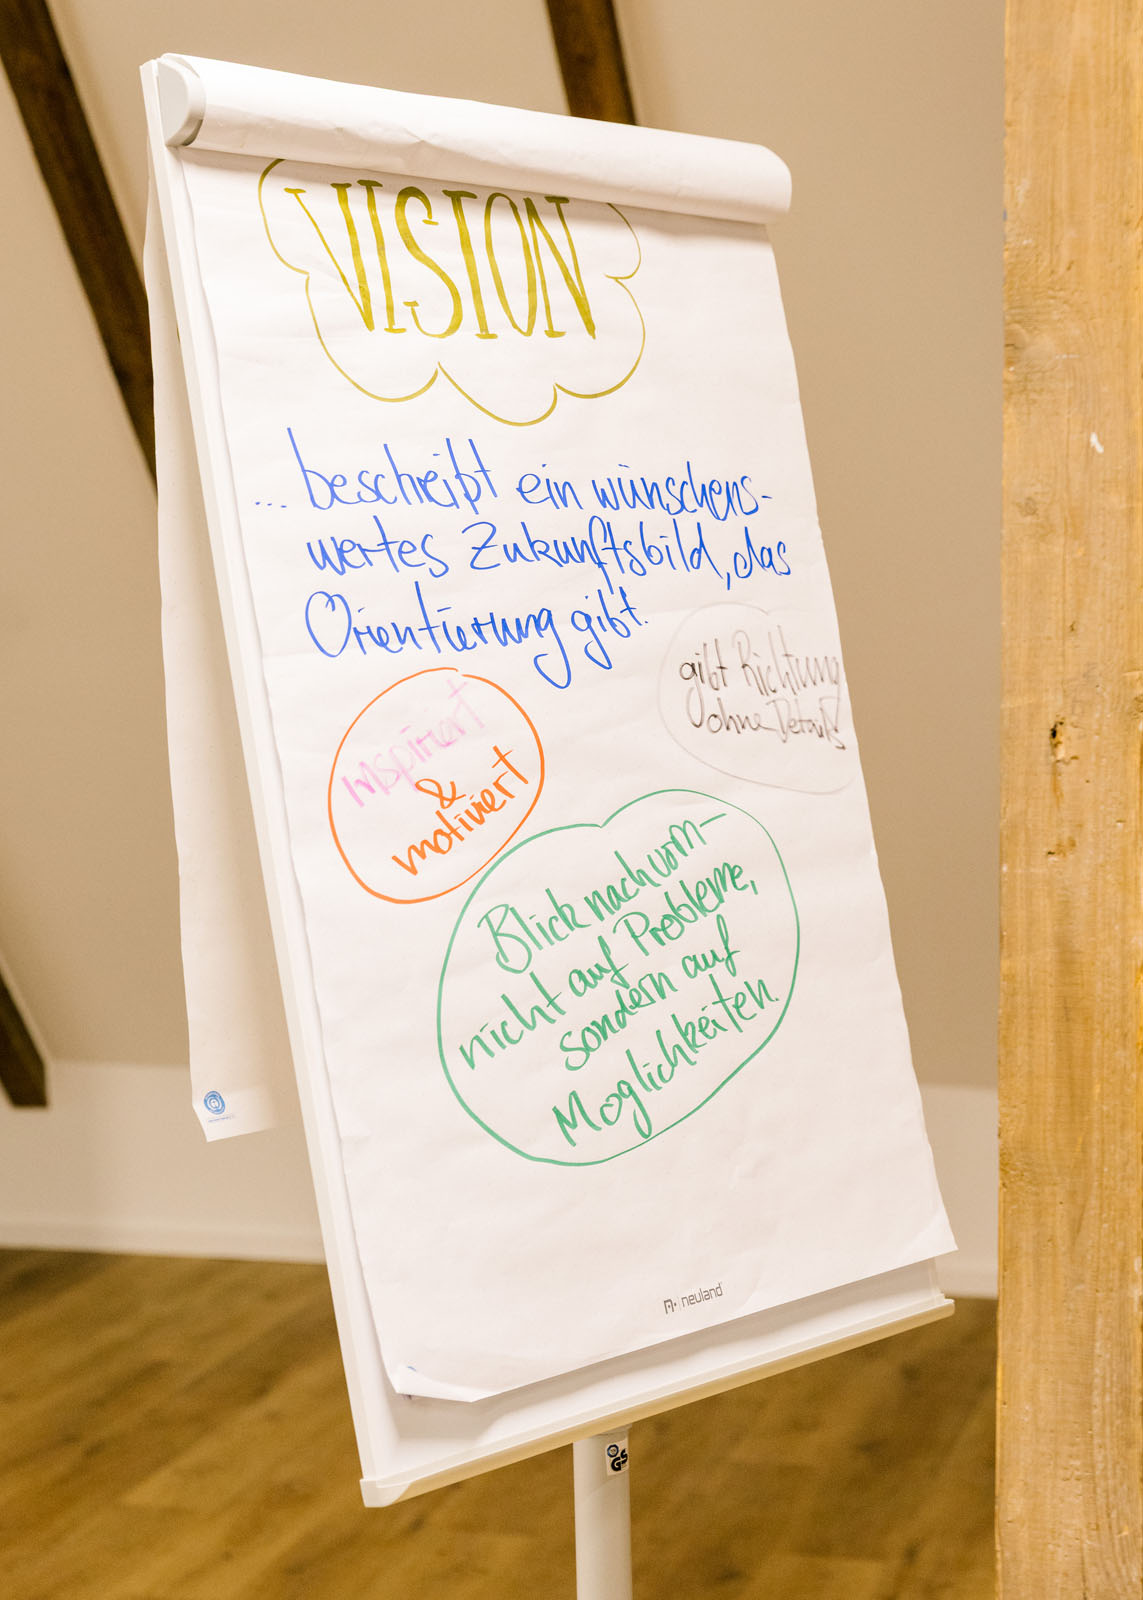 VISION
... beschreibt ein wünschens-
wertes Zukunftsbild, das
Orientierung gibt.
gibt Richtung
ohne Details
inspiriert
&
motiviert
Blick nach vorn –
nicht auf Probleme,
sondern auf
Möglichkeiten.
neuland
GS